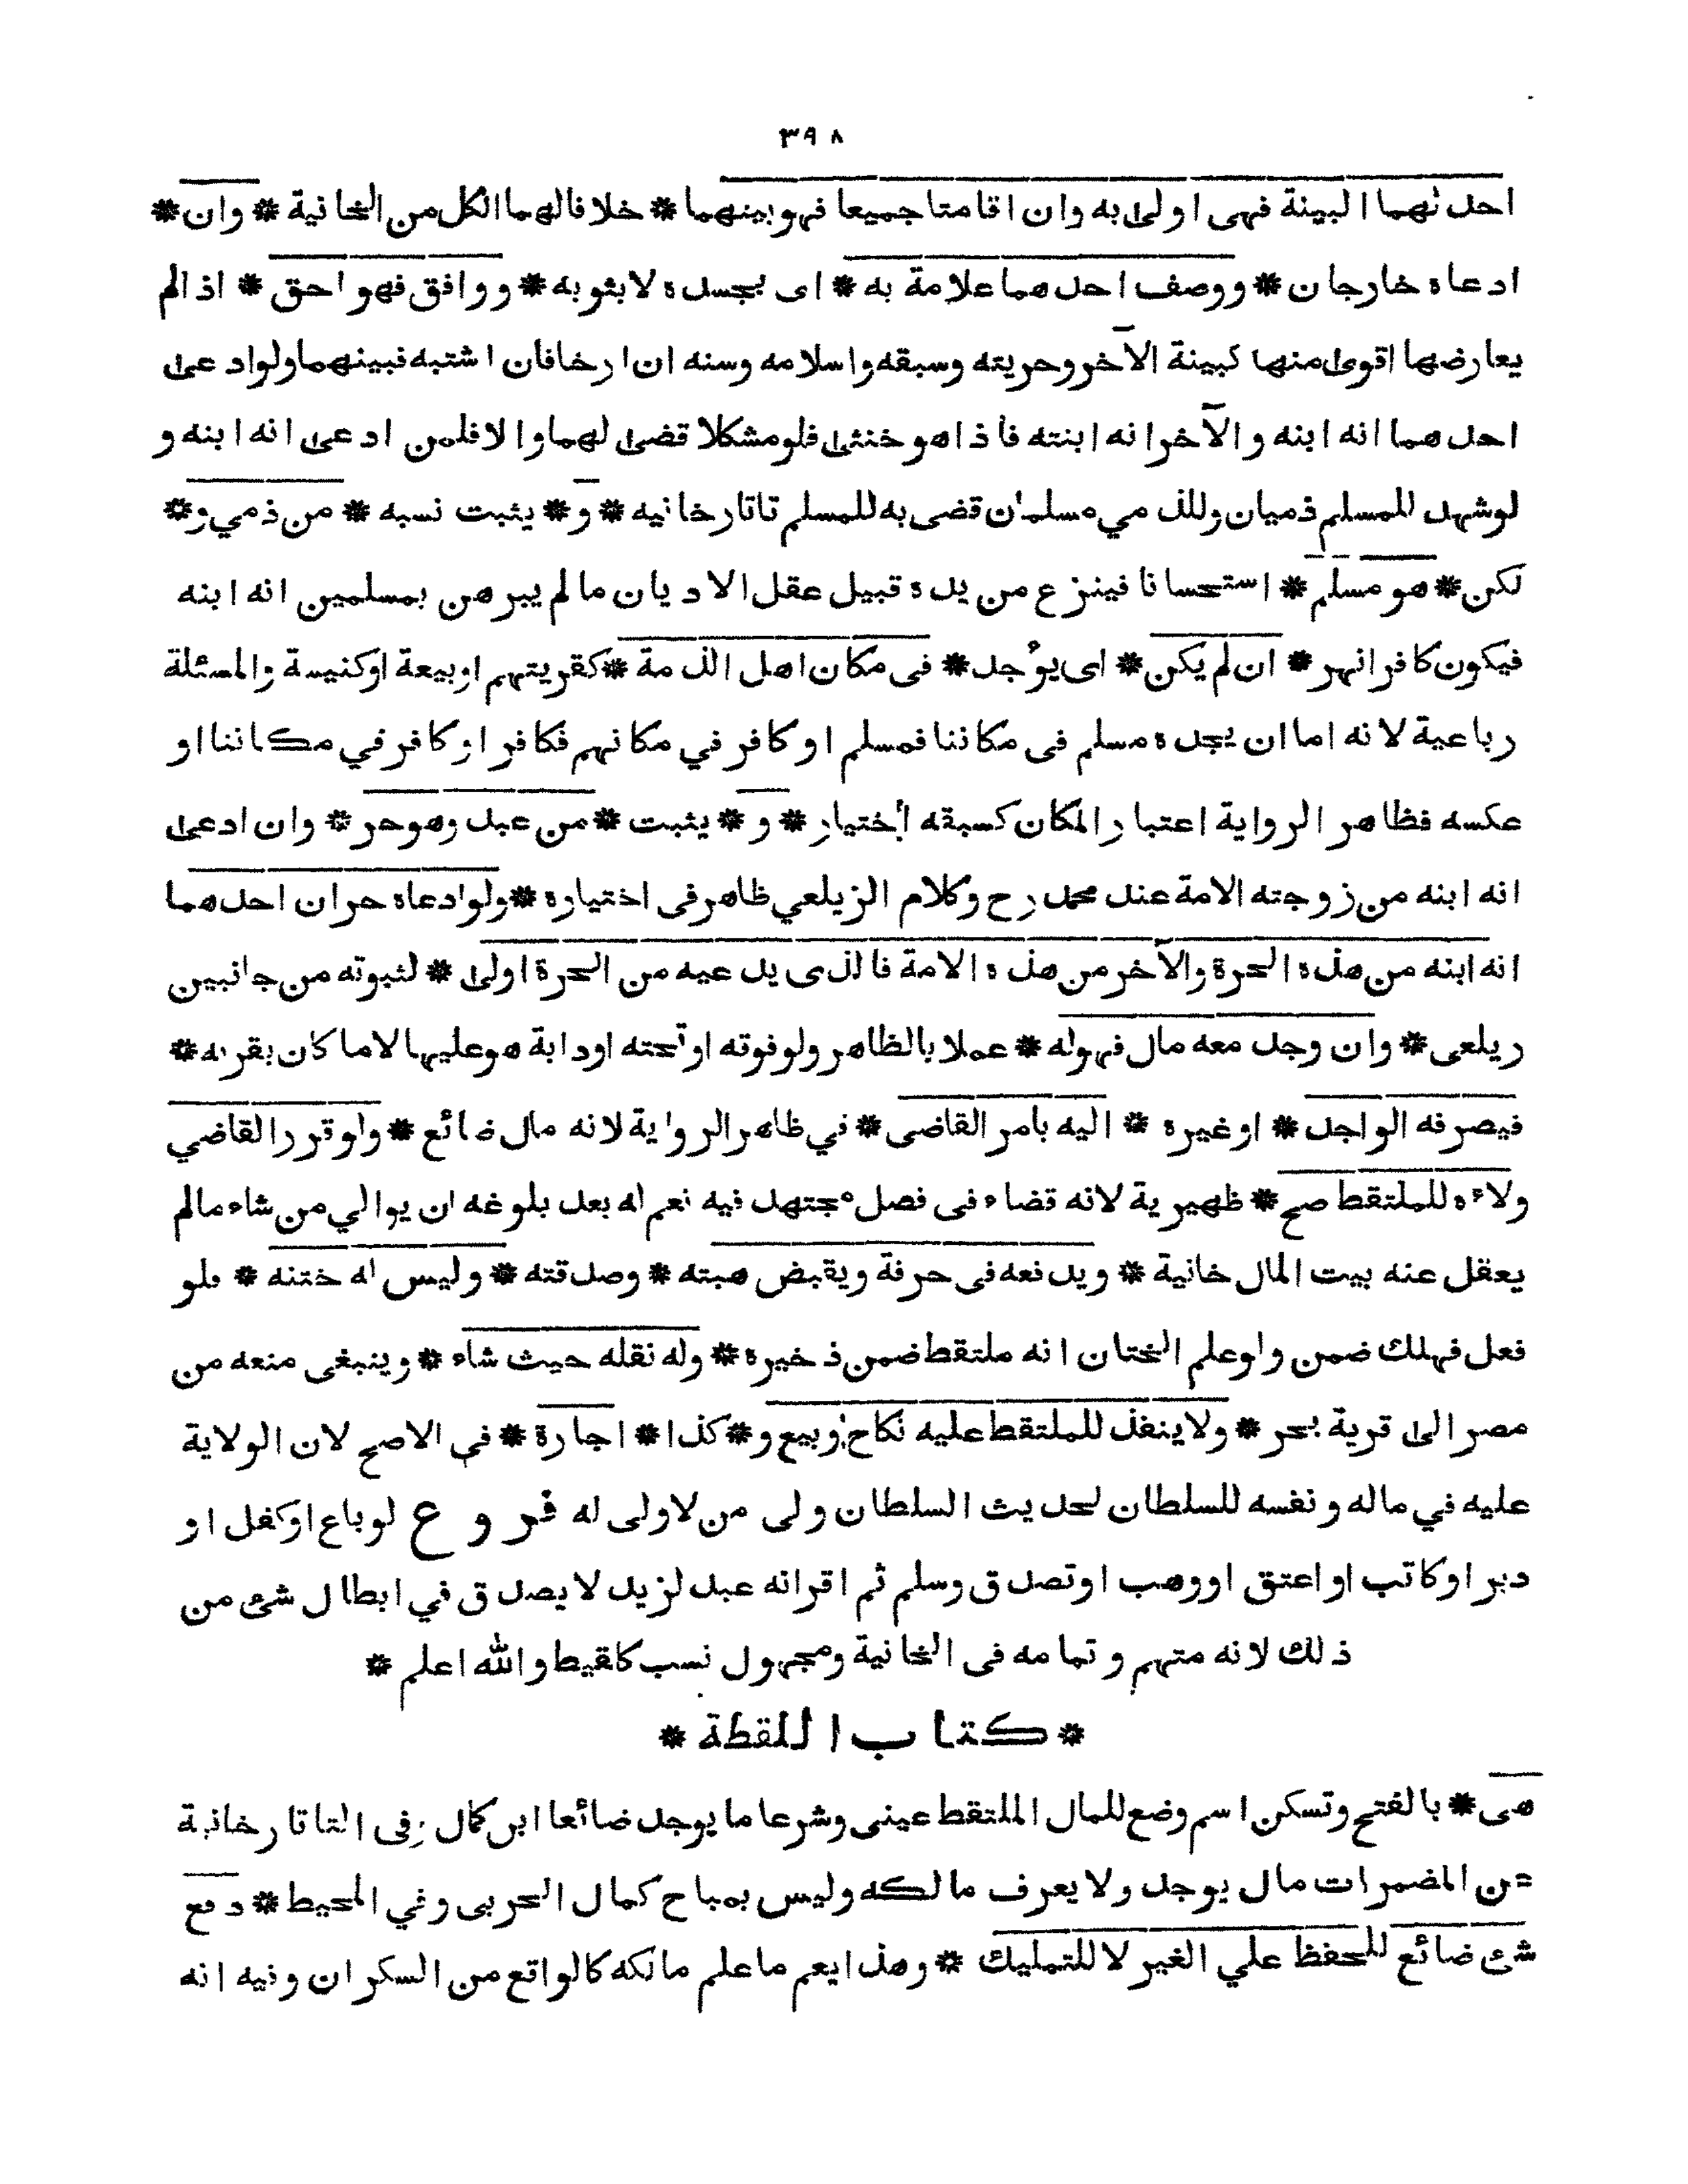 ٣٩٨
احدٰهما البينة فهى اولى به وان اقامتا جميعا فهو بينهما * خلافا لهما الكل من الخانية * وان *
ادعاه خارجان * ووصف احدهما علامة به * اى بجسده لا بثوبه * ووافق فهو احق * اذا لم
يعارضها اقوى منها كبينة الآخر وحريته وسبقه واسلامه وسنه ان ارخا فان اشتبه فبينهما ولو ادعى
احدهما انه ابنه والآخر انه ابنته فاذا هو خنثى فلو مشكلا قضى لهما والا فلمن ادعى انه ابنه و
لو شهد للمسلم ذميان وللذمي مسلمان قضى به للمسلم تاتارخانيه * و * يثبت نسبه * من ذمي و *
لكن * هو مسلم * استحسانا فينزع من يده قبيل عقل الاديان ما لم يبرهن بمسلمين انه ابنه
فيكون كافرا نهر * ان لم يكن * اى يوُجد * فى مكان اهل الذمة * كقريتهم او بيعة او كنيسة والمسئلة
رباعية لانه اما ان يجده مسلم فى مكاننا فمسلم او كافر في مكانهم فكافر او كافر في مكاننا او
عكسه فظاهر الرواية اعتبار المكان كسبقه اختيار * و * يثبت * من عبد وهو حر * وان ادعى
انه ابنه من زوجته الامة عند محمد رح وكلام الزيلعي ظاهر فى اختياره * ولو ادعاه حران احدهما
انه ابنه من هذه الحرة والآخر من هذه الامة فالذى يدعيه من الحرة اولى * لثبوته من جانبين
زيلعى * وان وجد معه مال فهوله * عملا بالظاهر ولو فوته او تحته او دابة هو عليها لا ما كان بقربه *
فيصرفه الواجد * او غيره * اليه بامر القاضى * في ظاهر الرواية لانه مال ضائع * ولو قرر القاضي
ولاءه للملتقط صح * ظهيرية لانه قضاء فى فصل مجتهد فيه نعم له بعد بلوغه ان يوالي من شاء مالم
يعقل عنه بيت المال خانية * ويدفعه فى حرفة ويقبض هبته * وصدقته * وليس له ختنه * فلو
فعل فهلك ضمن ولو علم الختان انه ملتقط ضمن ذخيرة * وله نقله حيث شاء * وينبغى منعه من
مصر الى قرية بحر * ولا ينفذ للملتقط عليه نكاح وبيع و * كذا * اجارة * فى الاصح لان الولاية
عليه في ماله ونفسه للسلطان لحديث السلطان ولى من لا ولى له فروع لو باع او كفل او
دبر او كاتب او اعتق او وهب او تصدق وسلم ثم اقر انه عبد لزيد لا يصدق في ابطال شئ من
ذلك لانه متهم وتمامه فى الخانية ومجهول نسب كلقيط والله اعلم *
* كتاب اللقطة *
هى * بالفتح وتسكن اسم وضع للمال الملتقط عينى وشرعا ما يوجد ضائعا ابن كمال وفى التاتارخانية
عن المضمرات مال يوجد ولا يعرف مالكه وليس بمباح كمال الحربى وفي المحيط * رفع
شئ ضائع للحفظ علي الغير لا للتمليك * وهذا يعم ما علم مالكه كالواقع من السكران وفيه انه